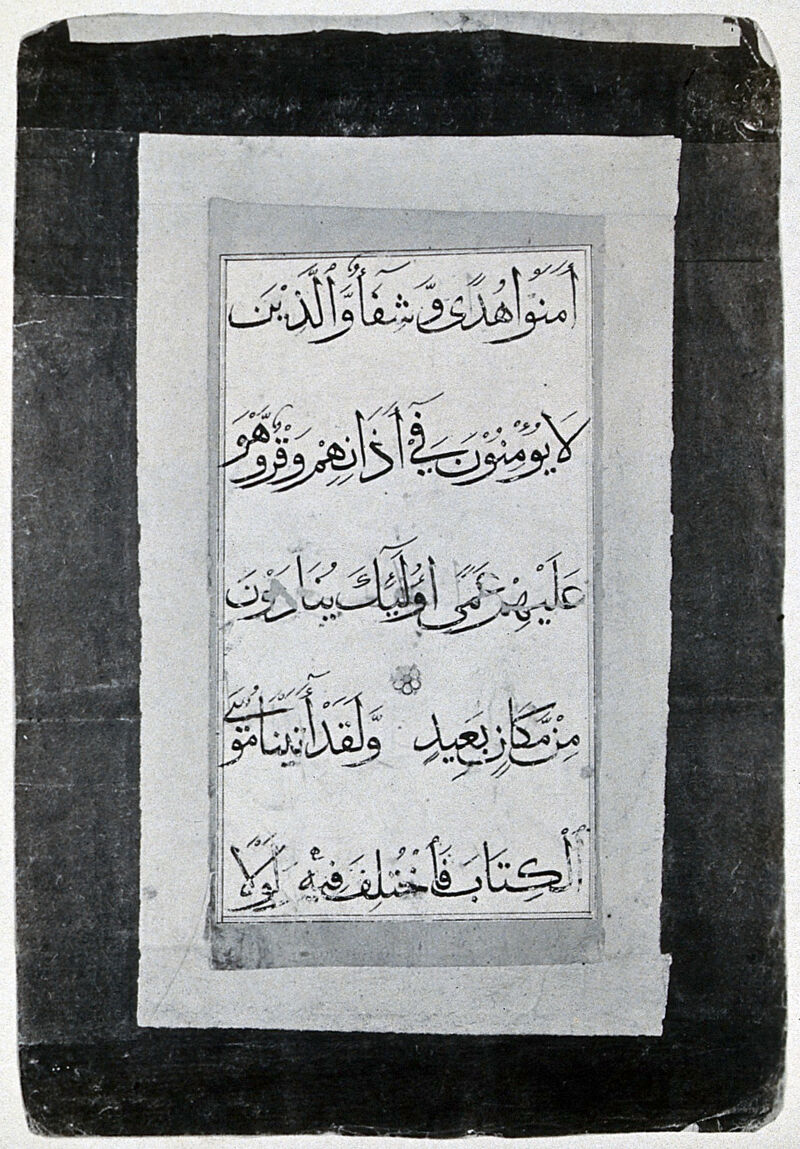 أٰمَنُوا هُدًى وَّشِفَآءٌ وَّالَّذِيْنَ
لَا يُؤْمِنُوْنَ فِيْٓ أٰذَانِهِمْ وَقْرٌ وَّهُوَ
عَلَيْهِمْ عَمًى اُولٰٓئِكَ يُنَادَوْنَ
مِنْ مَّكَانٍ بَعِيْدٍ وَّلَقَدْ أٰتَيْنَا مُوْسَى
الْكِتَابَ فَاخْتُلِفَ فِيْهِ وَلَوْلَا